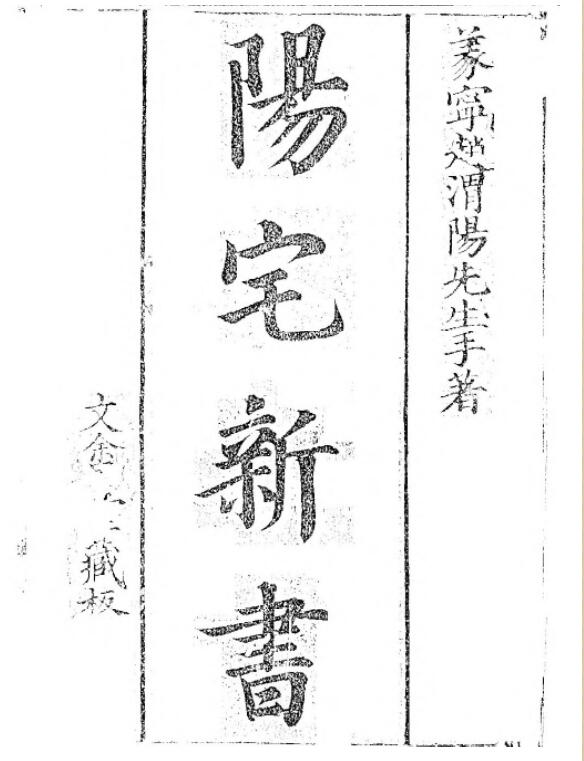 義寧趙渭陽先生手著
陽宅新書
文金藏板